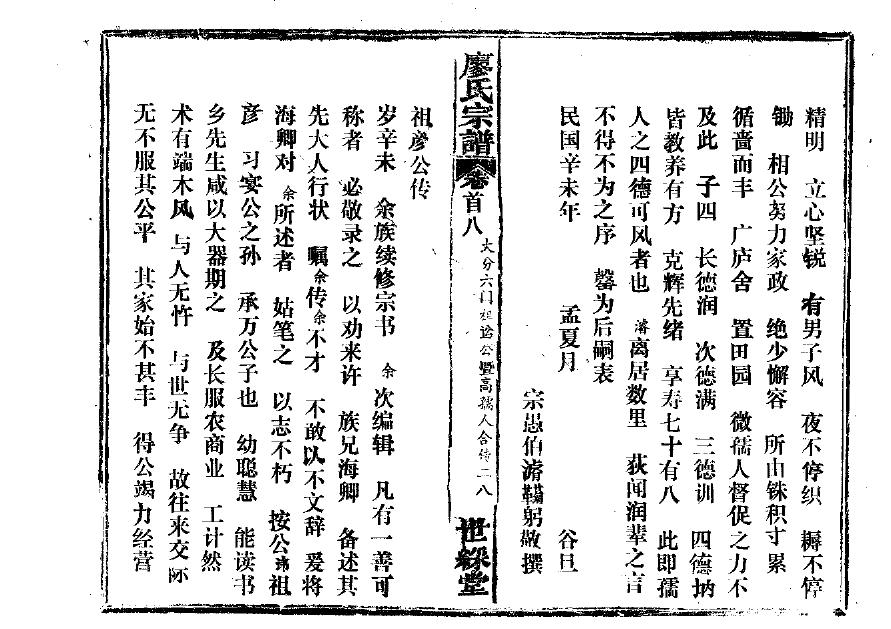 精明 立心坚锐 有男子风 夜不停织 耨不停
锄 相公努力家政 绝少懈容 所由铢积寸累
循啬而丰 广庐舍 置田园 微孺人督促之力不
及此 子四 长德润 次德满 三德训 四德坳
皆教养有方 克辉先绪 享寿七十有八 此即孺
人之四德可风者也 濬离居数里 获闻润辈之言
不得不为之序 罄为后嗣表
民国辛未年 孟夏月 谷旦
宗愚伯濬鞴躬敬撰
廖氏宗譜 卷首八 大分六门祖彦公暨高孺人合传二八 世綵堂
祖彦公传
岁辛未 余族续修宗书 余次编辑 凡有一善可
称者 必敬录之 以劝来许 族兄海卿 备述其
先大人行状 嘱余传余不才 不敢以不文辞 爰将
海卿对余所述者 姑笔之 以志不朽 按公讳祖
彦 习宾公之孙 承万公子也 幼聪慧 能读书
乡先生咸以大器期之 及长服农商业 工计然
术有端木风 与人无忤 与世无争 故往来交际
无不服其公平 其家始不甚丰 得公竭力经营